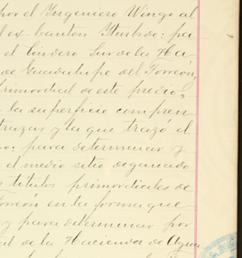 por el Ingeniero Wingo al
l ex. canton Iturbide: pa
el lindero Sur de la Ha
de Guadalupe del Torreón,
primordial de este predio
la superficie compren
trazas y la que trazó el
no: para determinar y
el medio sitio deganado
titulos primordiales de
reon en la forma que
y para determinar por
d de la Hacienda de Agua